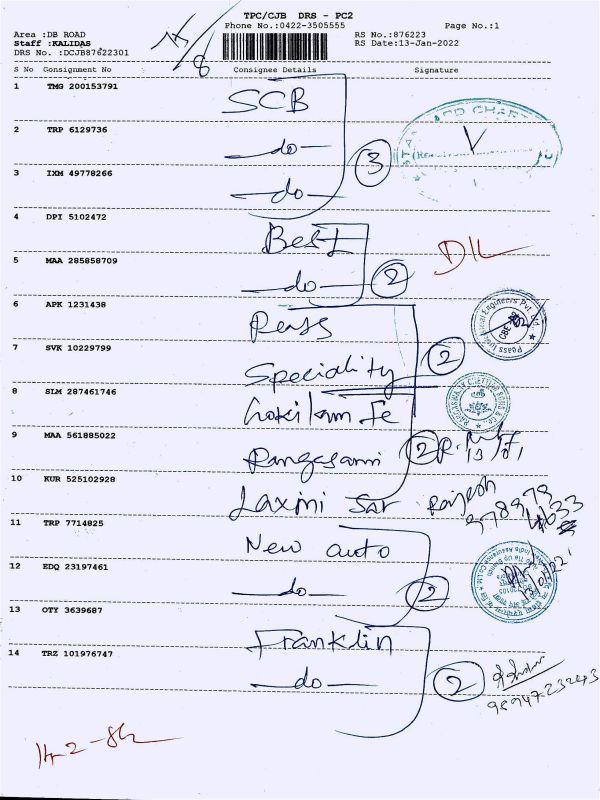 TPC/CJB DRS - PC2
Phone No.:0422-3505555 Page No.:1
Area :DB ROAD RS No.:876223
Staff :KALIDAS RS Date:13-Jan-2022
DRS No. :DCJB87622301
14/8
S No Gonsignment No Consignee Details Signature
1 TMG 200153791 SCB
2 TRP 6129736 -do-
3 IXM 49778266 -do- 3
4 DPI 5102472 Best
5 MAA 285858709 -do- 2
6 APK 1231438 Peass
7 SVK 10229799 Speciality 2
8 SLM 287461746 Gokilam Je
9 MAA 561885022 Rangasami 2
10 KUR 525102928 Laxmi Sar Rajesh
11 TRP 7714825 New auto
12 EDQ 23197461 -do- 2
13 OTY 3639687 Franklin
14 TRZ 101976747 -do- 2
14-2-8